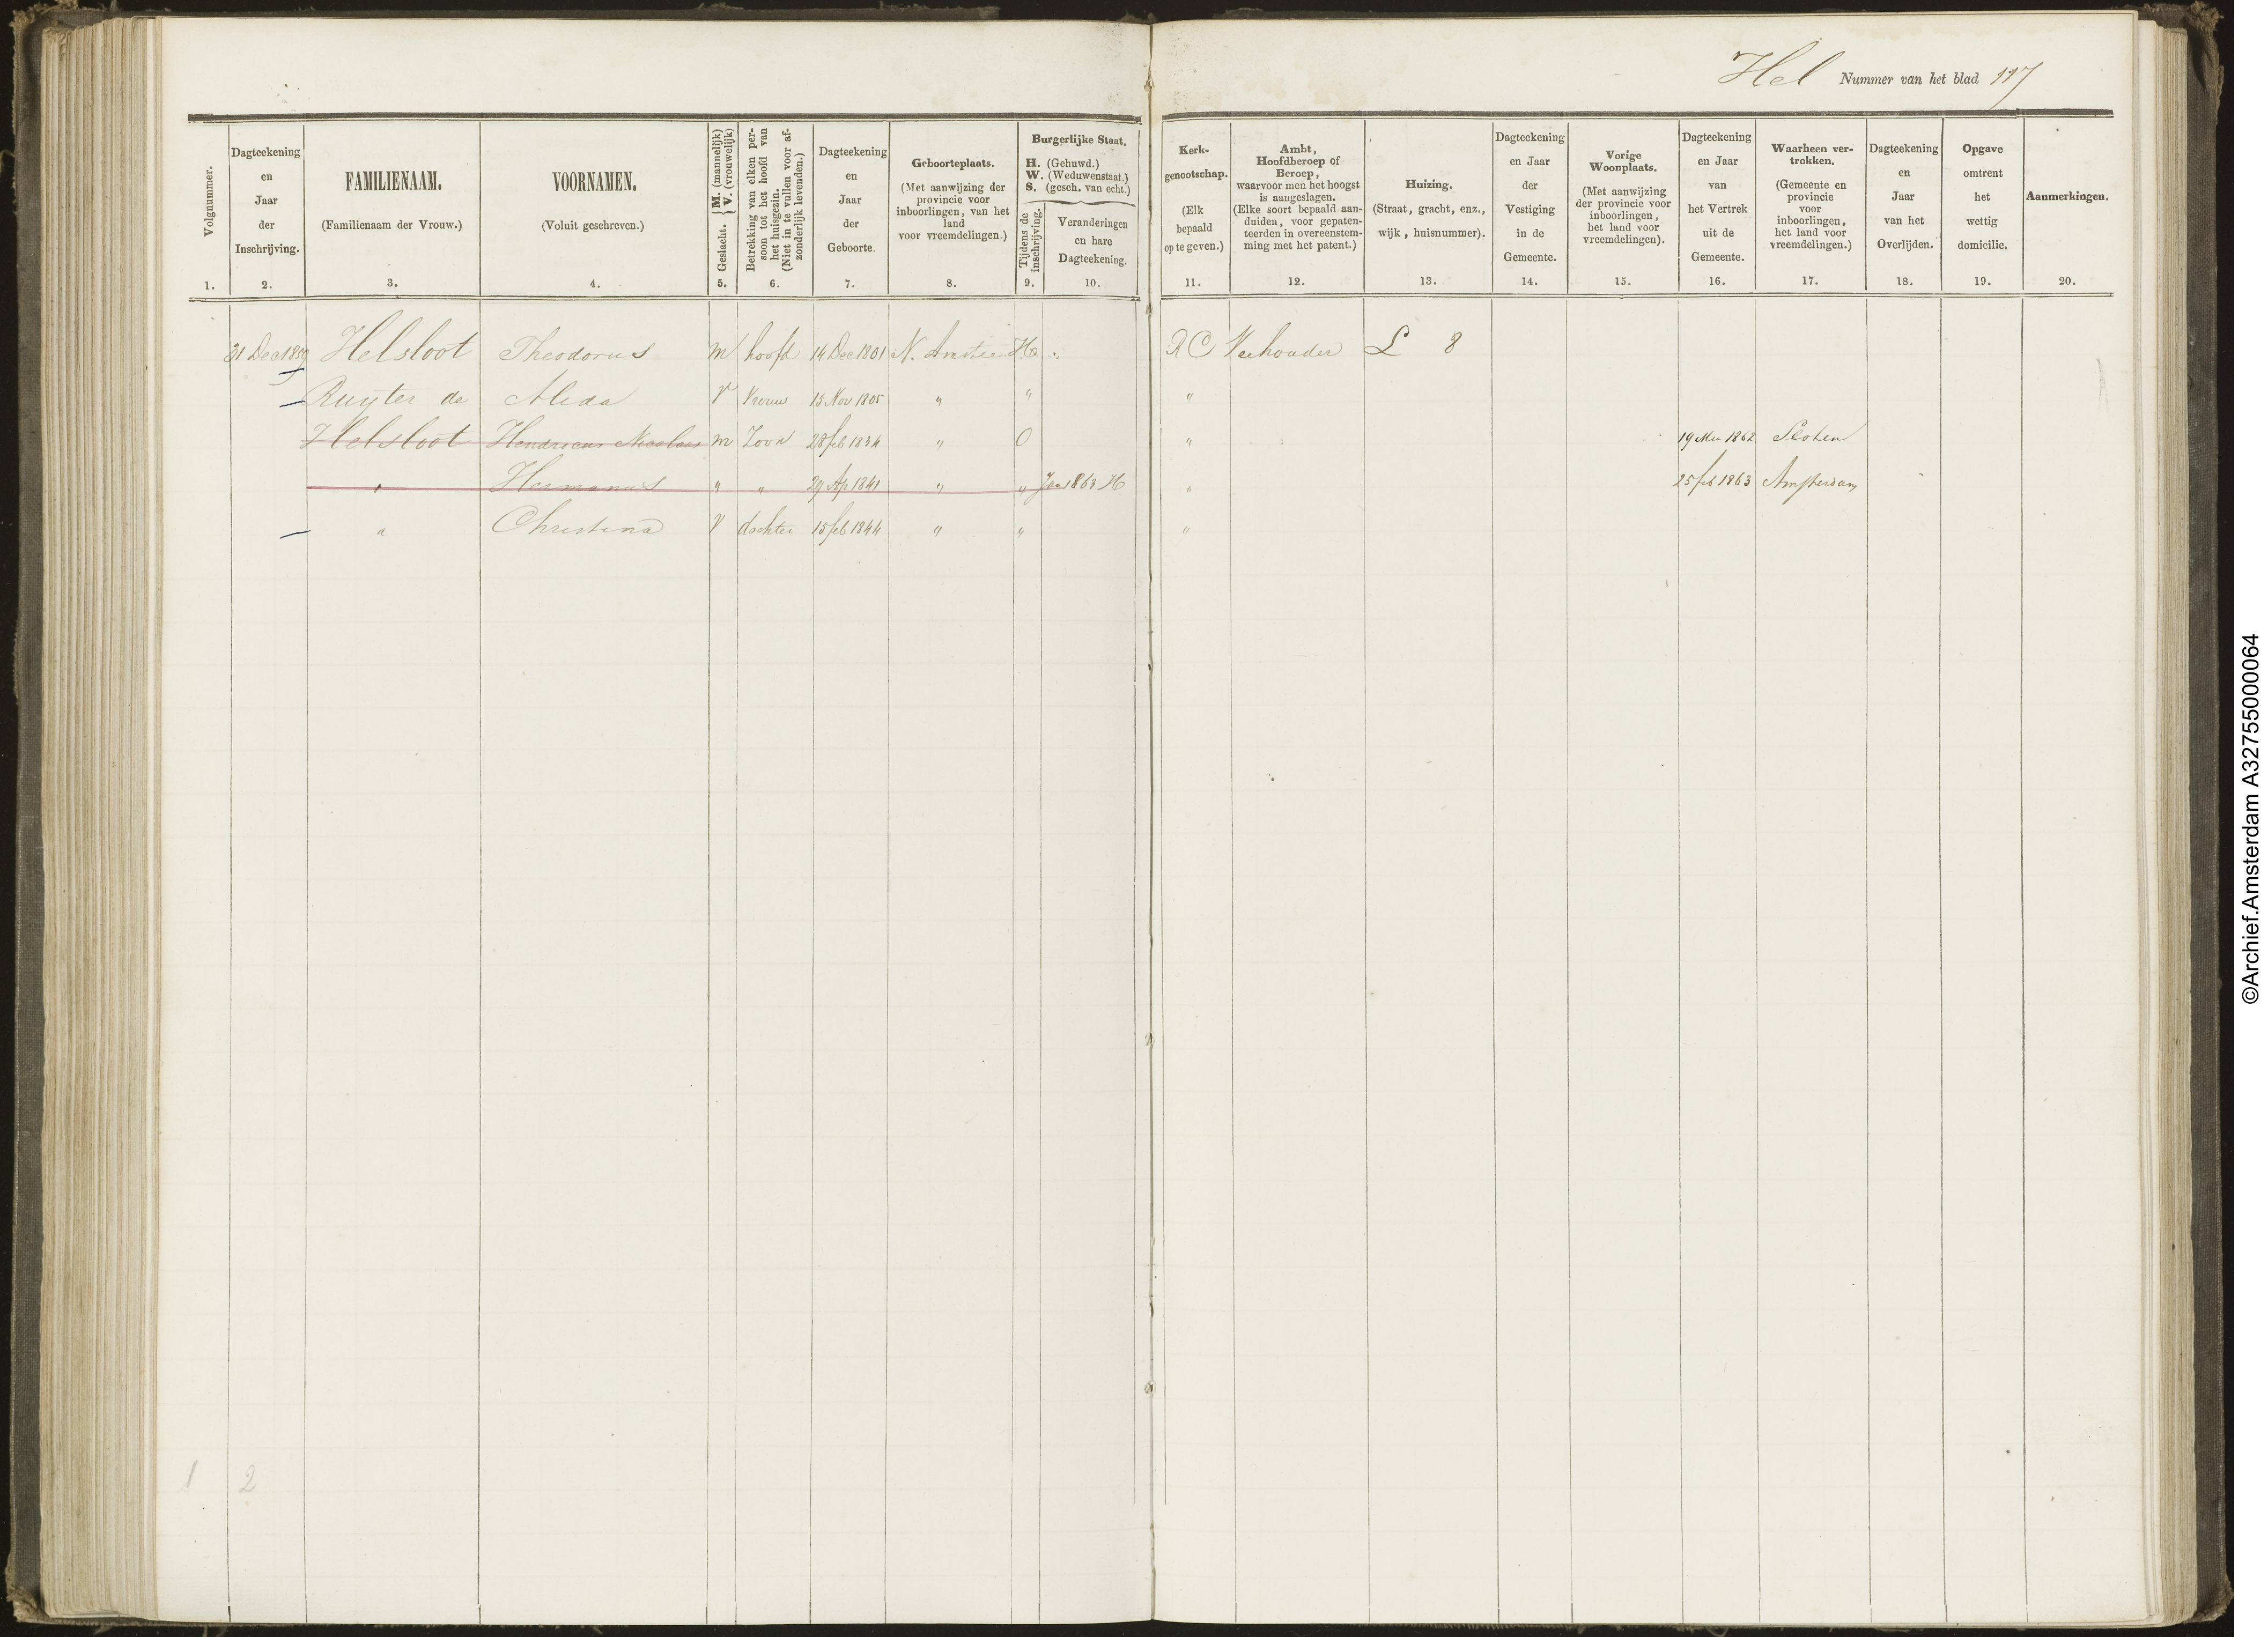 Hel Nummer van het blad 117
Volgnummer.
1.
Dagteekening
en
Jaar
der
Inschrijving.
2.
FAMILIENAAM.
(Familienaam der Vrouw.)
3.
VOORNAMEN.
(Voluit geschreven.)
4.
Geslacht. { M. (mannelijk)
V. (vrouwelijk)
5.
Betrekking van elken per-
soon tot het hoofd van
het huisgezin.
(Niet in te vullen voor af-
zonderlijk levenden.)
6.
Dagteekening
en
Jaar
der
Geboorte.
7.
Geboorteplaats.
(Met aanwijzing der
provincie voor
inboorlingen, van het
land
voor vreemdelingen.)
8.
Burgerlijke Staat.
H. (Gehuwd.)
W. (Weduwenstaat.)
S. (gesch. van echt.)
Tijdens de
inschrijving.
9.
Veranderingen
en hare
Dagteekening.
10.
Kerk-
genootschap.
(Elk
bepaald
op te geven.)
11.
Ambt,
Hoofdberoep of
Beroep,
waarvoor men het hoogst
is aangeslagen.
(Elke soort bepaald aan-
duiden, voor gepaten-
teerden in overeenstem-
ming met het patent.)
12.
Huizing.
(Straat, gracht, enz.,
wijk, huisnummer).
13.
Dagteekening
en Jaar
der
Vestiging
in de
Gemeente.
14.
Vorige
Woonplaats.
(Met aanwijzing
der provincie voor
inboorlingen,
het land voor
vreemdelingen).
15.
Dagteekening
en Jaar
van
het Vertrek
uit de
Gemeente.
16.
Waarheen ver-
trokken.
(Gemeente en
provincie
voor
inboorlingen,
het land voor
vreemdelingen.)
17.
Dagteekening
en
Jaar
van het
Overlijden.
18.
Opgave
omtrent
het
wettig
domicilie.
19.
Aanmerkingen.
20.
31 Dec 1859 Helsloot Theodorus M hoofd 14 Dec 1801 N. Amstel H " RC Veehouder L 8
Ruyter de Alida V Vrouw 13 Nov 1805 " " "
Helsloot Hendricus Nicolaas M Zoon 28 feb 1834 " O " 19 1862 Sloten
" Hermanus " " 29 Ap 1841 " " Jan 1863 H " 25 feb 1863 Amsterdam
" Christina V dochter 15 feb 1844 " " "
1 2
©Archief.Amsterdam A32755000064